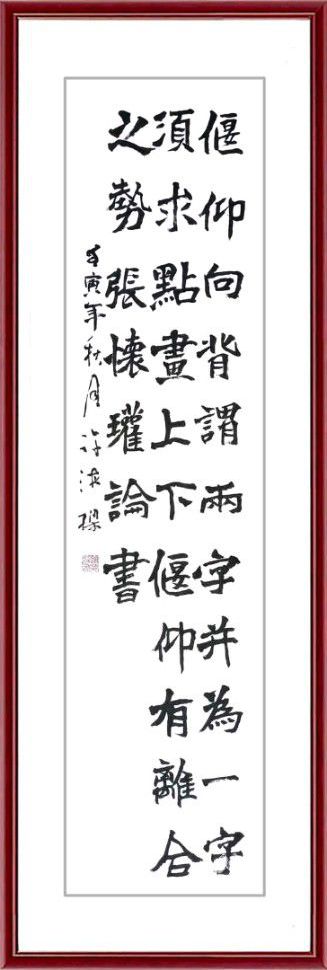 偃仰向背謂兩字并為一字
須求點畫上下偃仰有離合
之勢張懷瓘論書
壬寅年秋月許海梁